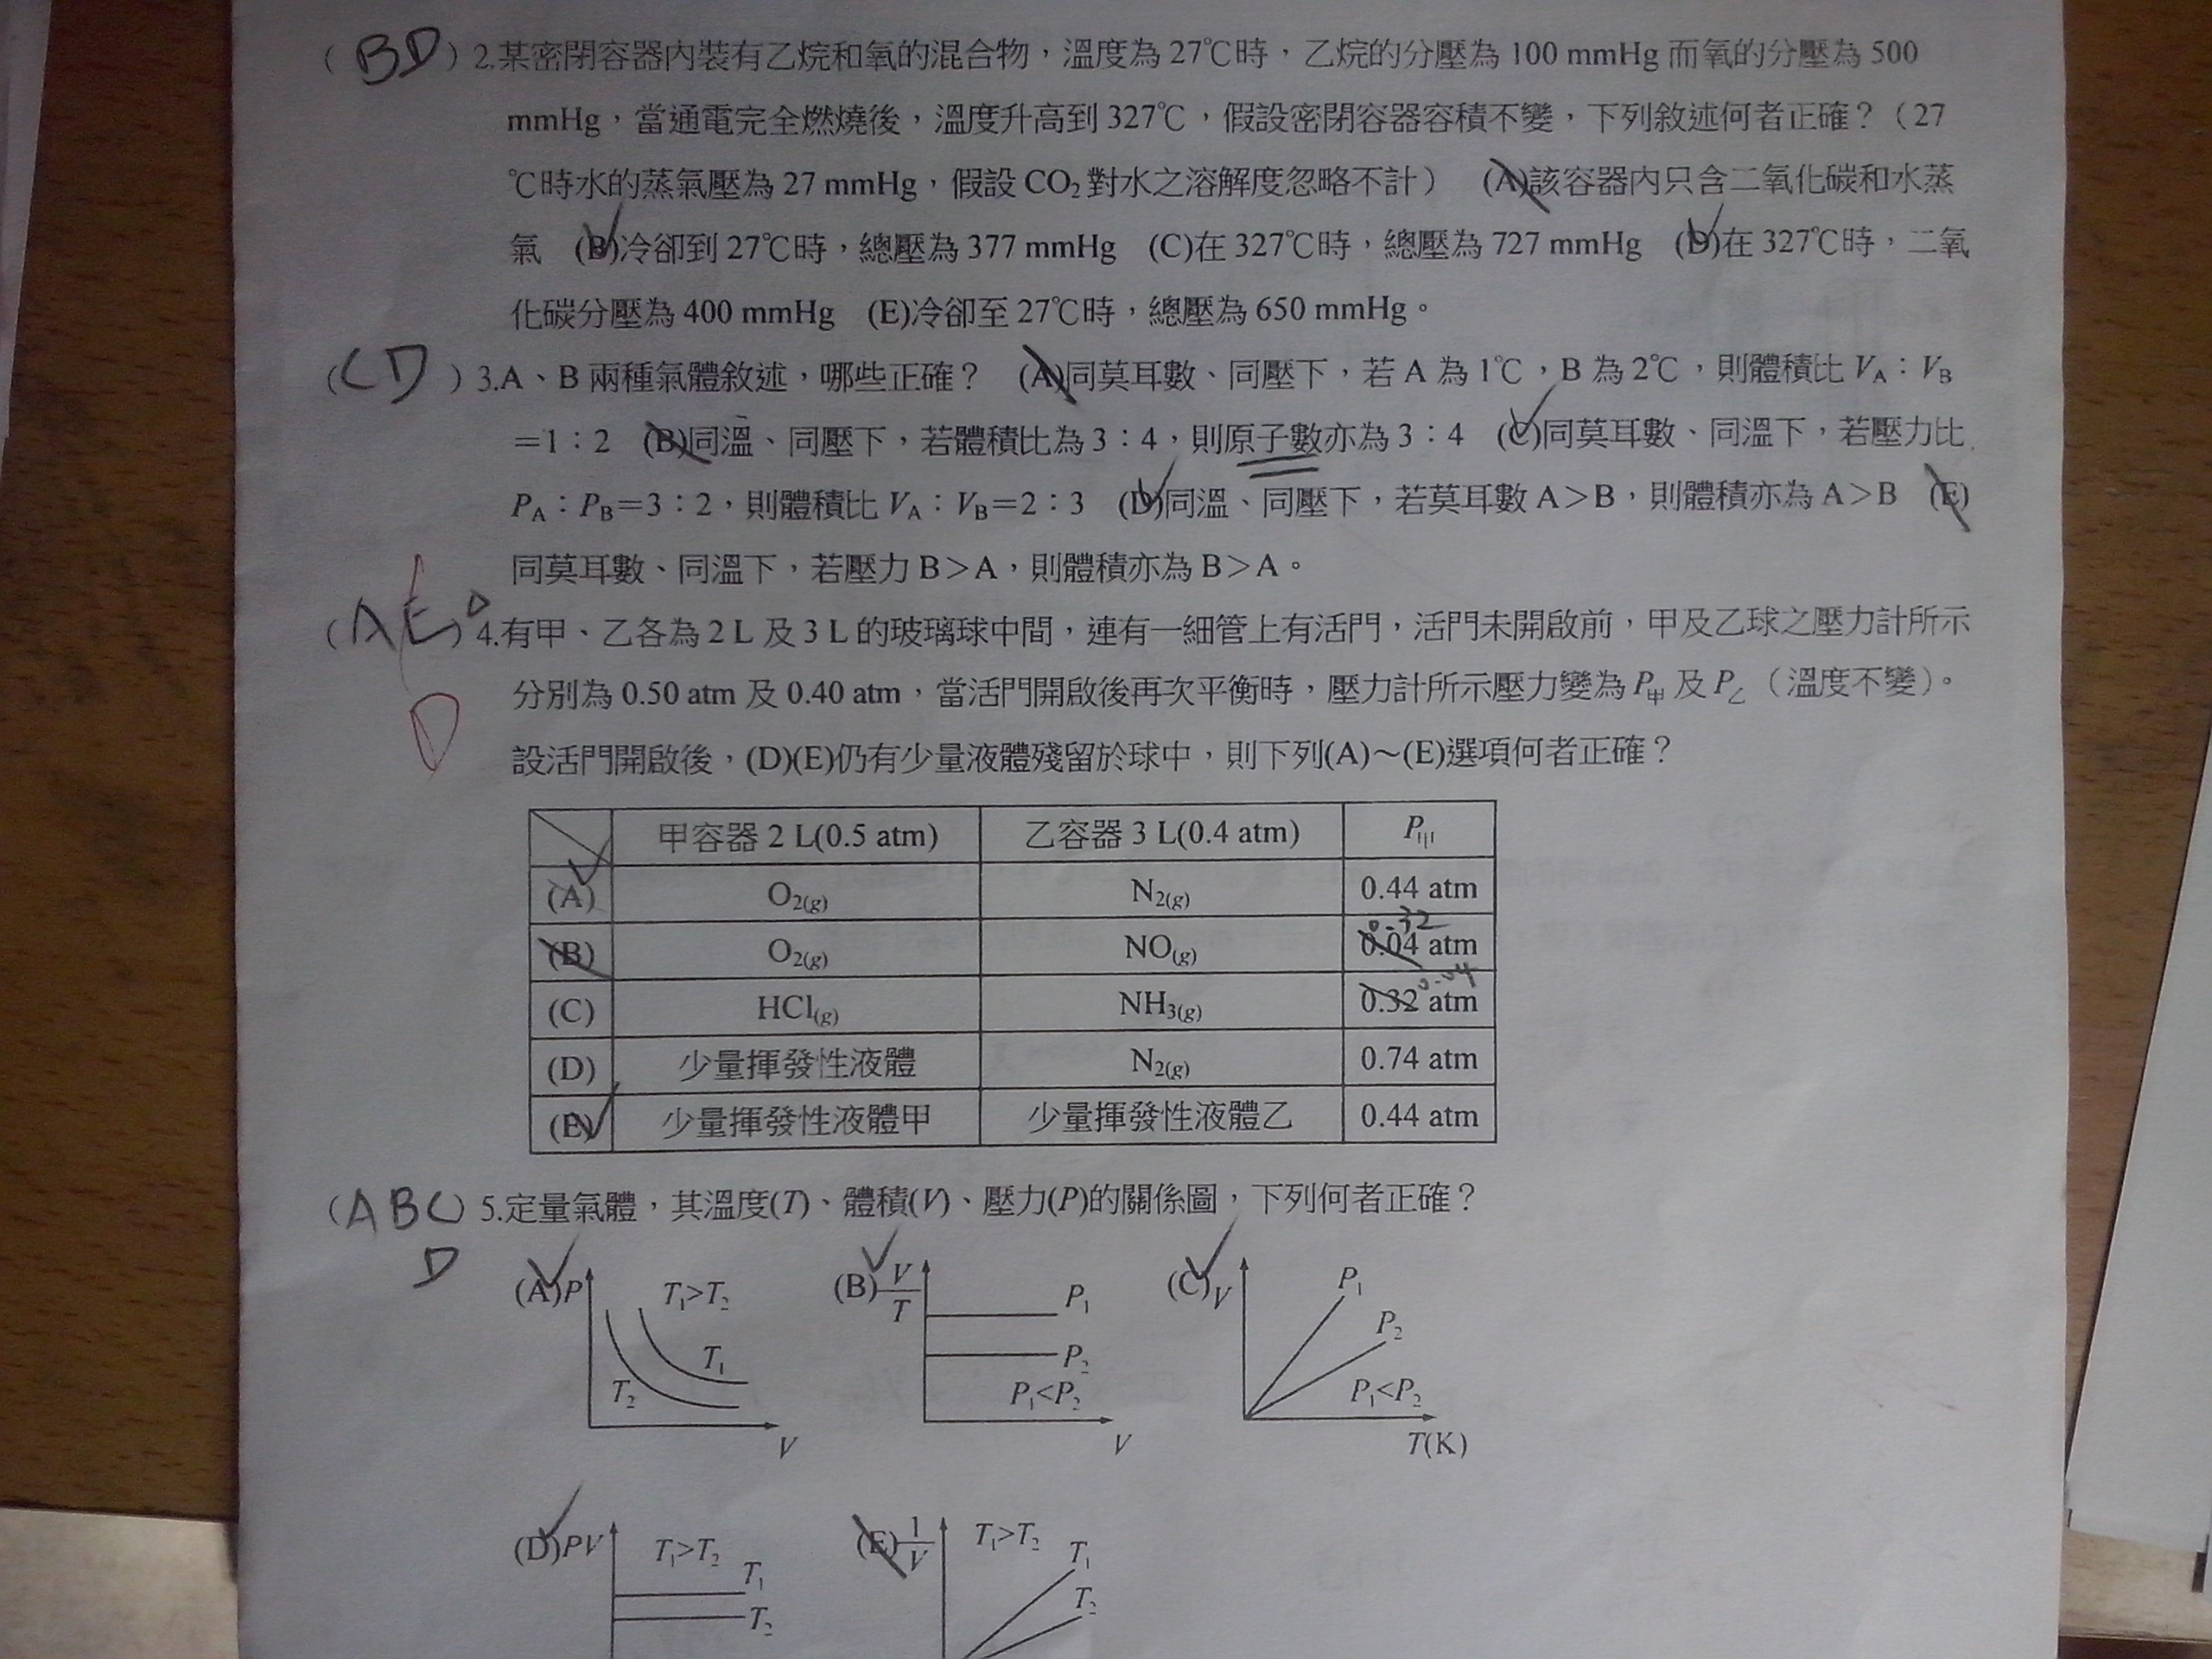 ( BD ) 2.某密閉容器內裝有乙烷和氧的混合物，溫度為 27℃時，乙烷的分壓為 100 mmHg 而氧的分壓為 500
mmHg，當通電完全燃燒後，溫度升高到 327℃，假設密閉容器容積不變，下列敘述何者正確？（27
℃時水的蒸氣壓為 27 mmHg，假設 CO₂ 對水之溶解度忽略不計） (A)該容器內只含二氧化碳和水蒸
氣 (B)冷卻到 27℃時，總壓為 377 mmHg (C)在 327℃時，總壓為 727 mmHg (D)在 327℃時，二氧
化碳分壓為 400 mmHg (E)冷卻至 27℃時，總壓為 650 mmHg。
( CD ) 3.A、B 兩種氣體敘述，哪些正確？ (A)同莫耳數、同壓下，若 A 為 1℃，B 為 2℃，則體積比 V_A：V_B
＝1：2 (B)同溫、同壓下，若體積比為 3：4，則原子數亦為 3：4 (C)同莫耳數、同溫下，若壓力比
P_A：P_B＝3：2，則體積比 V_A：V_B＝2：3 (D)同溫、同壓下，若莫耳數 A＞B，則體積亦為 A＞B (E)
同莫耳數、同溫下，若壓力 B＞A，則體積亦為 B＞A。
( AE D ) 4.有甲、乙各為 2 L 及 3 L 的玻璃球中間，連有一細管上有活門，活門未開啟前，甲及乙球之壓力計所示
分別為 0.50 atm 及 0.40 atm，當活門開啟後再次平衡時，壓力計所示壓力變為 P甲 及 P乙（溫度不變）。
D
設活門開啟後，(D)(E)仍有少量液體殘留於球中，則下列(A)～(E)選項何者正確？
甲容器 2 L(0.5 atm) 乙容器 3 L(0.4 atm) P甲
(A) O₂(g) N₂(g) 0.44 atm
0.32
(B) O₂(g) NO(g) 0.04 atm
0.04
(C) HCl(g) NH₃(g) 0.32 atm
(D) 少量揮發性液體 N₂(g) 0.74 atm
(E) 少量揮發性液體甲 少量揮發性液體乙 0.44 atm
( ABC ) 5.定量氣體，其溫度(T)、體積(V)、壓力(P)的關係圖，下列何者正確？
D
(A) P T₁>T₂ T₁ T₂ V
(B) V/T P₁ P₂ P₁<P₂ V
(C) V P₁ P₂ P₁<P₂ T(K)
(D) PV T₁>T₂ T₁ T₂
(E) 1/V T₁>T₂ T₁ T₂